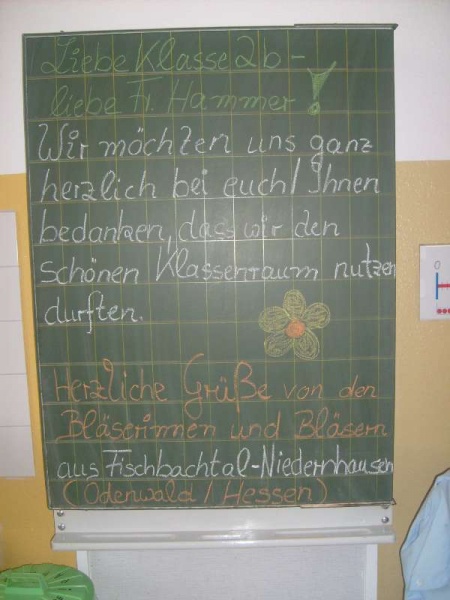 Liebe Klasse 2b -
liebe Fr. Hammer!
Wir möchten uns ganz
herzlich bei euch/Ihnen
bedanken, dass wir den
schönen Klassenraum nutzen
durften.
Herzliche Grüße von den
Bläserinnen und Bläsern
aus Fischbachtal-Niedernhausen
(Odenwald/Hessen)
0